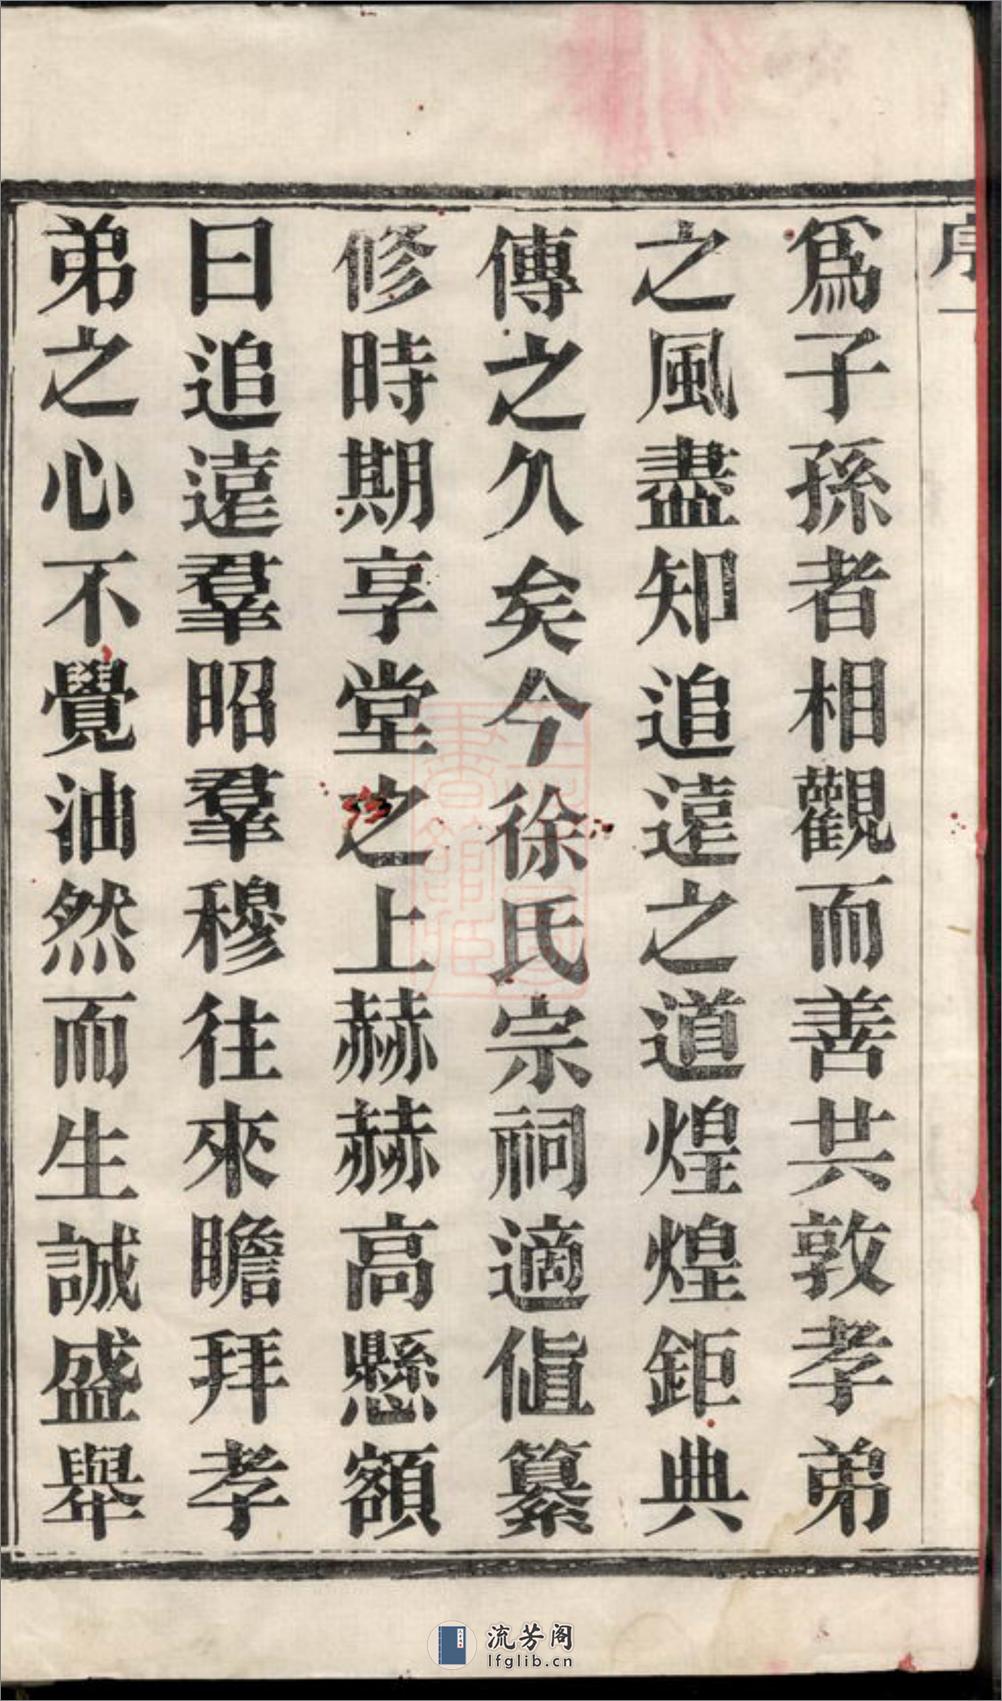 序一
爲子孫者相觀而善共敦孝弟
之風盡知追遠之道煌煌鉅典
傳之久矣今徐氏宗祠適値纂
修時期享堂之上赫赫高懸額
曰追遠羣昭羣穆往來瞻拜孝
弟之心不覺油然而生誠盛舉
流芳阁
lfglib.cn